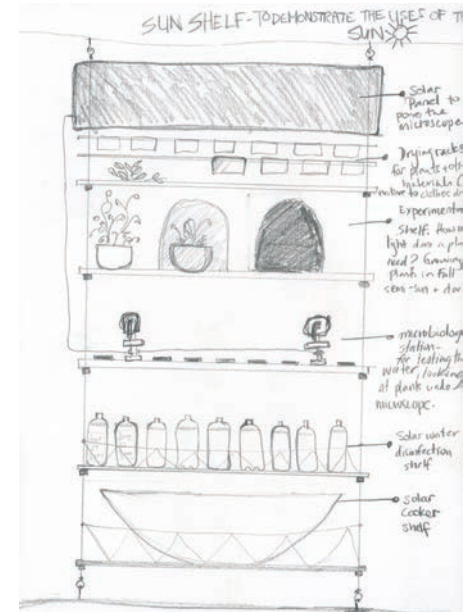 SUN SHELF - TO DEMONSTRATE THE USES OF
SUN
Solar
Panel to
the
microscope
Drying racks
for plants
materials
to clothes
Experiment
Shelf. How
light does a
need? Growing
plants in Full
semi-sun +
microbiology
station -
for testing
water/looking
at plants under
microscope.
Solar water
disinfection
shelf
solar
cooker
shelf